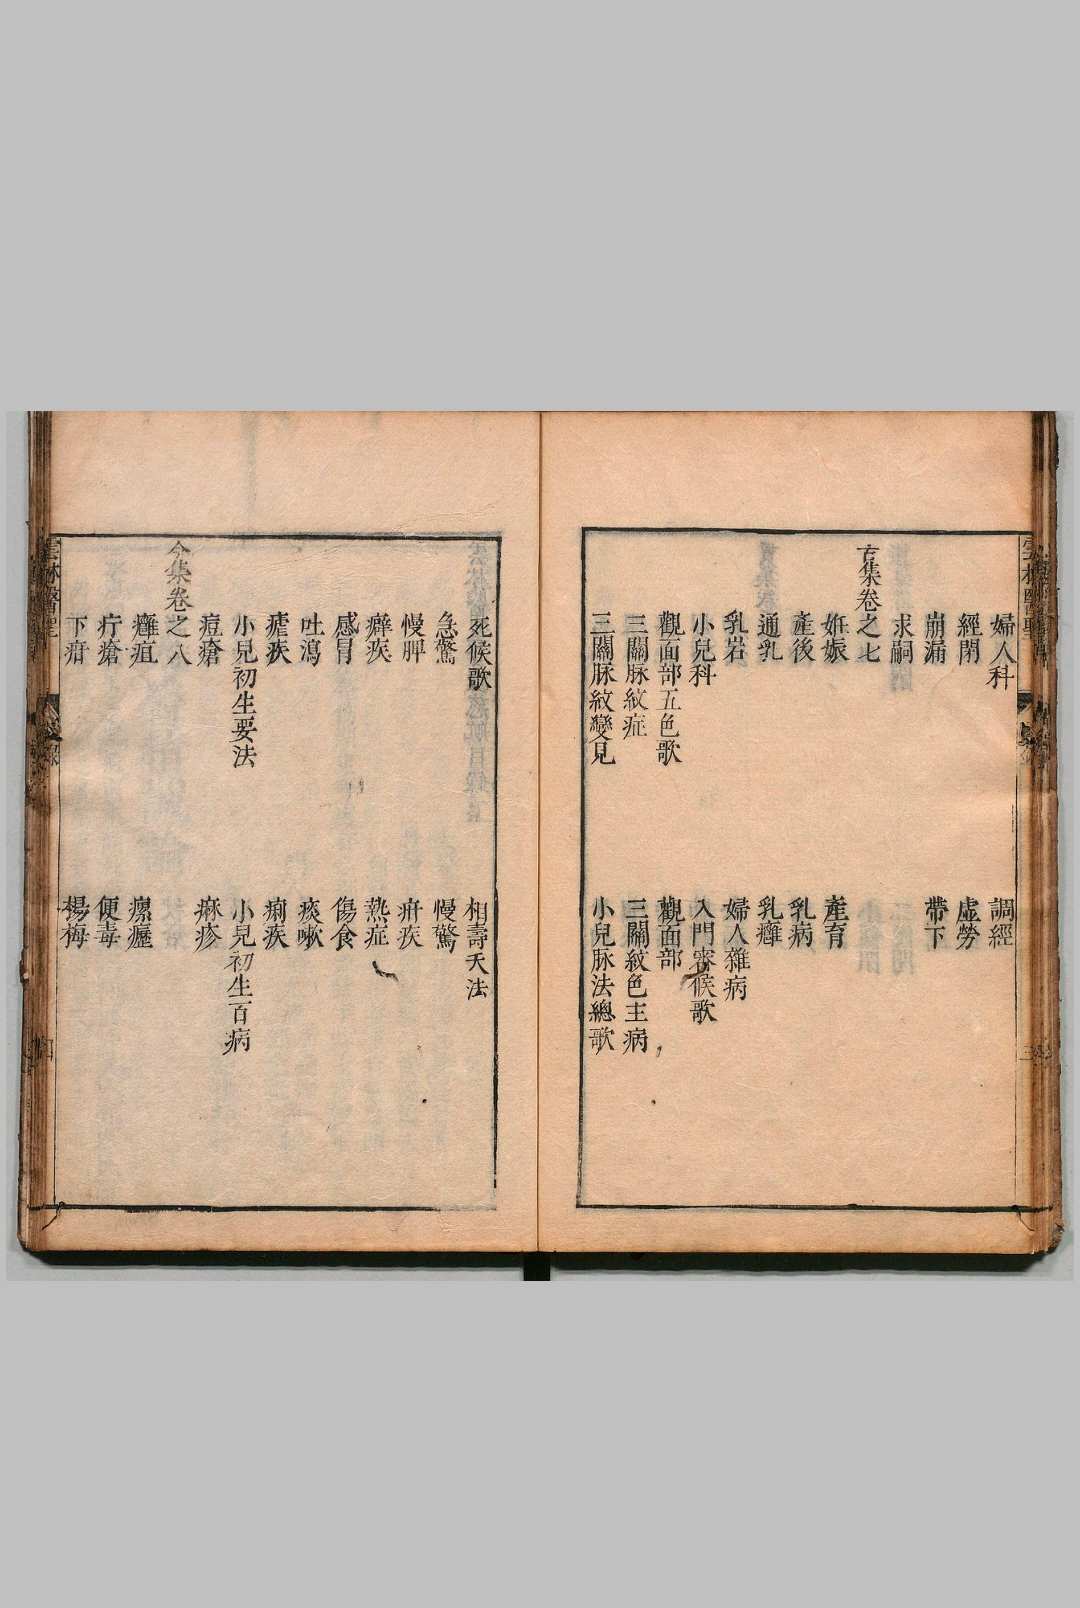 婦人科　調經
經閉　虛勞
崩漏　帶下
求嗣
𠫵集卷之七
姙娠　產育
產後　乳病
通乳　乳癰
乳岩　婦人雜病
小兒科　入門審候歌
觀面部五色歌　觀面部
三關脉紋症　三關紋色主病
三關脉紋變見　小兒脉法總歌
死候歌　相壽夭法
急驚　慢驚
慢脾　疳疾
癖疾　熱症
感冒　傷食
吐瀉　痰嗽
瘧疾　痢疾
小兒初生要法　小兒初生百病
痘瘡　麻疹
今集卷之八
癰疽　瘰癧
疔瘡　便毒
下疳　楊梅